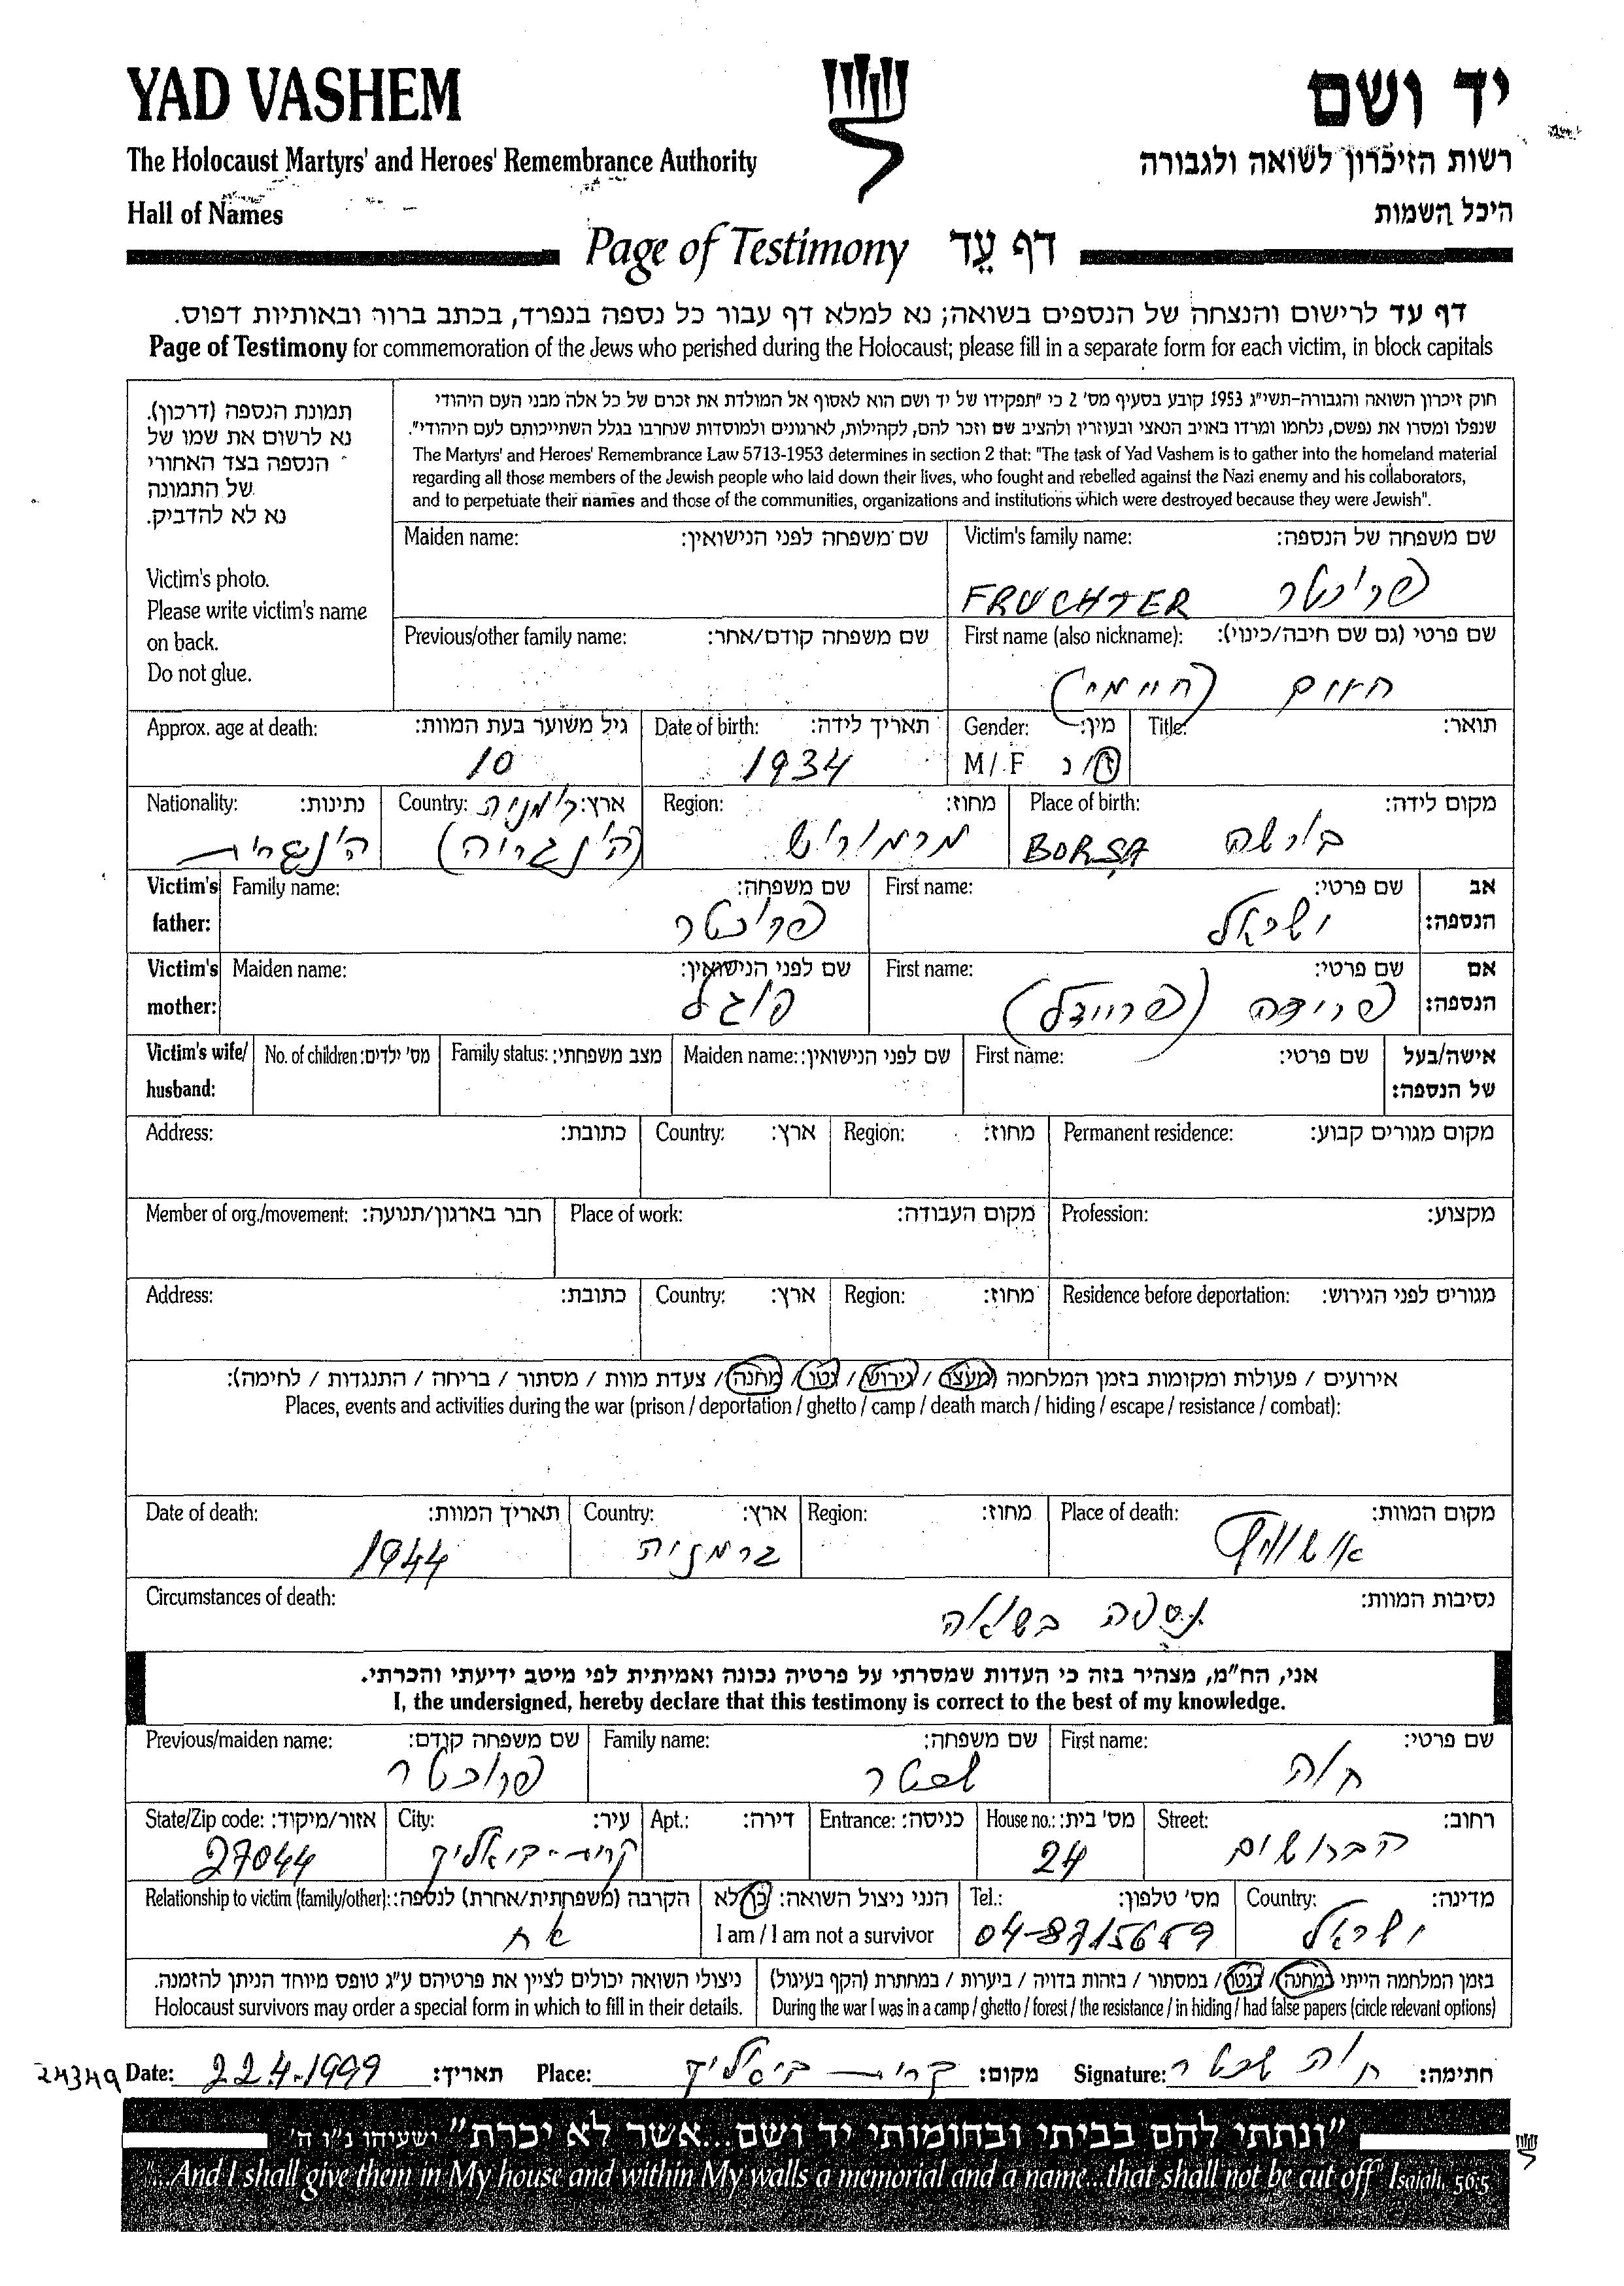 YAD VASHEM
יד ושם
The Holocaust Martyrs' and Heroes' Remembrance Authority
רשות הזיכרון לשואה ולגבורה
Hall of Names
היכל השמות
Page of Testimony דף עֵד
דף עד לרישום והנצחה של הנספים בשואה; נא למלא דף עבור כל נספה בנפרד, בכתב ברור ובאותיות דפוס.
Page of Testimony for commemoration of the Jews who perished during the Holocaust; please fill in a separate form for each victim, in block capitals
תמונת הנספה (דרכון).
נא לרשום את שמו של
הנספה בצד האחורי
של התמונה
נא לא להדביק.
Victim's photo.
Please write victim's name
on back.
Do not glue.
חוק זיכרון השואה והגבורה-תשי"ג 1953 קובע בסעיף מס' 2 כי "תפקידו של יד ושם הוא לאסוף אל המולדת את זכרם של כל אלה מבני העם היהודי
שנפלו ומסרו את נפשם, נלחמו ומרדו באויב הנאצי ובעוזריו ולהציב שם וזכר להם, לקהילות, לארגונים ולמוסדות שנחרבו בגלל השתייכותם לעם היהודי".
The Martyrs' and Heroes' Remembrance Law 5713-1953 determines in section 2 that: "The task of Yad Vashem is to gather into the homeland material
regarding all those members of the Jewish people who laid down their lives, who fought and rebelled against the Nazi enemy and his collaborators,
and to perpetuate their names and those of the communities, organizations and institutions which were destroyed because they were Jewish".
Victim's family name: שם משפחה של הנספה:
FRUCHTER פרוכטר
Maiden name: שם משפחה לפני הנישואין:
First name (also nickname): שם פרטי (גם שם חיבה/כינוי):
חיים (חיימי)
Previous/other family name: שם משפחה קודם/אחר:
Title: תואר:
Gender: מין:
M / F ז/נ
Date of birth: תאריך לידה:
1934
Approx. age at death: גיל משוער בעת המוות:
10
Place of birth: מקום לידה:
BORSA בורשה
Region: מחוז:
מרמורש
Country: ארץ: רומניה
(הונגריה)
Nationality: נתינות:
הונגרית
Victim's father: אב הנספה:
First name: שם פרטי:
ישראל
Family name: שם משפחה:
פרוכטר
Victim's mother: אם הנספה:
First name: שם פרטי:
פרידה (פריידל)
Maiden name: שם לפני הנישואין:
פוגל
Victim's wife/ husband: אישה/בעל של הנספה:
First name: שם פרטי:
Maiden name: שם לפני הנישואין:
Family status: מצב משפחתי:
No. of children: מס' ילדים:
Permanent residence: מקום מגורים קבוע:
Region: מחוז:
Country: ארץ:
Address: כתובת:
Profession: מקצוע:
Place of work: מקום העבודה:
Member of org./movement: חבר בארגון/תנועה:
Residence before deportation: מגורים לפני הגירוש:
Region: מחוז:
Country: ארץ:
Address: כתובת:
אירועים / פעולות ומקומות בזמן המלחמה (מעצר / גירוש / גטו / מחנה / צעדת מוות / מסתור / בריחה / התנגדות / לחימה):
Places, events and activities during the war (prison / deportation / ghetto / camp / death march / hiding / escape / resistance / combat):
Place of death: מקום המוות:
אושוויץ
Region: מחוז:
Country: ארץ:
גרמניה
Date of death: תאריך המוות:
1944
Circumstances of death: נסיבות המוות:
נספה בשואה
אני, הח"מ, מצהיר בזה כי העדות שמסרתי על פרטיה נכונה ואמיתית לפי מיטב ידיעתי והכרתי.
I, the undersigned, hereby declare that this testimony is correct to the best of my knowledge.
First name: שם פרטי:
חוה
Family name: שם משפחה:
שכטר
Previous/maiden name: שם משפחה קודם:
פרוכטר
Street: רחוב:
הברושים
House no.: מס' בית:
24
Entrance: כניסה:
Apt.: דירה:
City: עיר:
קרית-ביאליק
State/Zip code: אזור/מיקוד:
27044
Country: מדינה:
ישראל
Tel.: מס' טלפון:
04-8715659
הנני ניצול השואה: כן/לא
I am / I am not a survivor
Relationship to victim (family/other): הקרבה (משפחתית/אחרת) לנספה:
אח
בזמן המלחמה הייתי במחנה / בגטו / במסתור / בזהות בדויה / ביערות / במחתרת (הקף בעיגול)
During the war I was in a camp / ghetto / forest / the resistance / in hiding / had false papers (circle relevant options)
ניצולי השואה יכולים לציין את פרטיהם ע"ג טופס מיוחד הניתן להזמנה.
Holocaust survivors may order a special form in which to fill in their details.
24349 Date: 22.4.1999 תאריך: Place: קרית ביאליק מקום: Signature: חוה שכטר חתימה:
"ונתתי להם בביתי ובחומותי יד ושם...אשר לא יכרת" ישעיהו נ"ו ה'
"...And I shall give them in My house and within My walls a memorial and a name...that shall not be cut off" Isaiah, 56:5